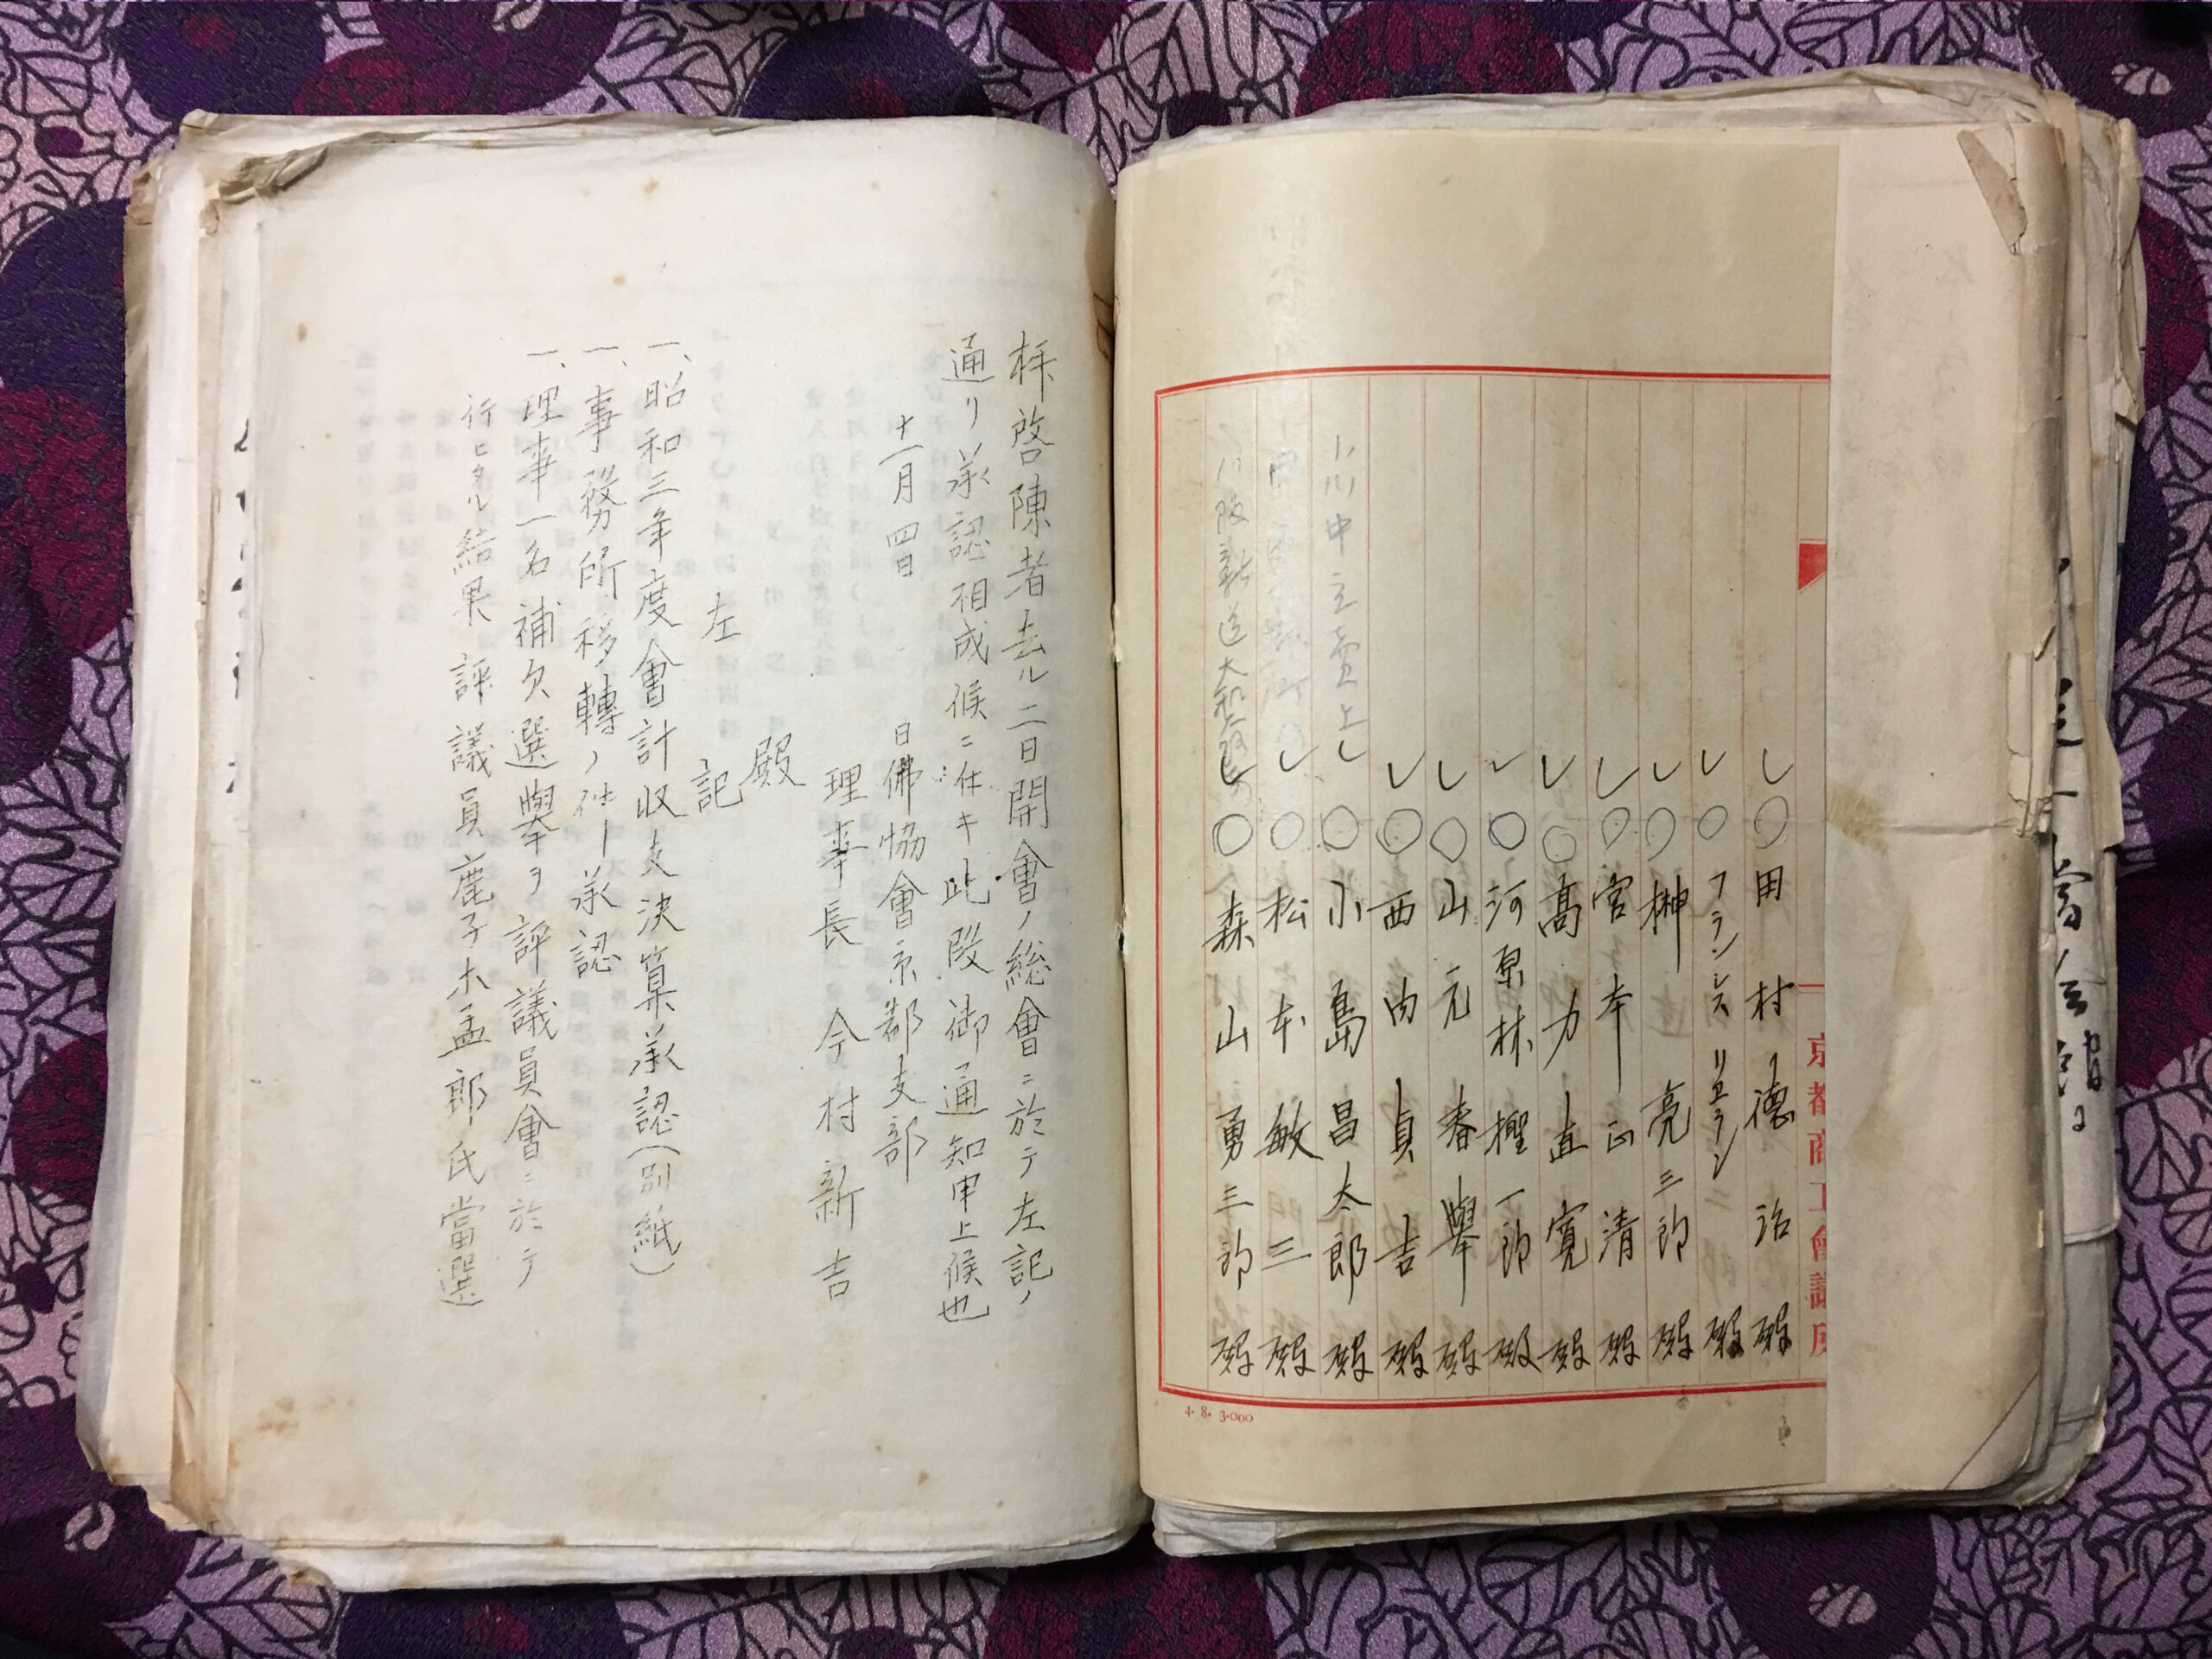 京都商工會議所
用村德治殿
フランシス リュラン殿
榊亮三郎殿
宮本正清殿
髙力直寛殿
河原林檉一郎殿
山元春擧殿
西內貞吉殿
小川中立賣上
小島昌太郎殿
松本敏三殿
森山勇三郎殿
4. 8. 3.000
拝啓陳者去ル二日開會ノ総會ニ於テ左記ノ
通リ承認相成候ニ付キ此段御通知申上候也
十一月四日
日佛協會京都支部
理事長 今村新吉
殿
左記
一、昭和三年度會計収支決算承認(別紙)
一、事務所移轉ノ件承認
一、理事一名補欠選擧ヲ評議員會ニ於テ
行ヒタル結果 評議員鹿子木孟郎氏當選